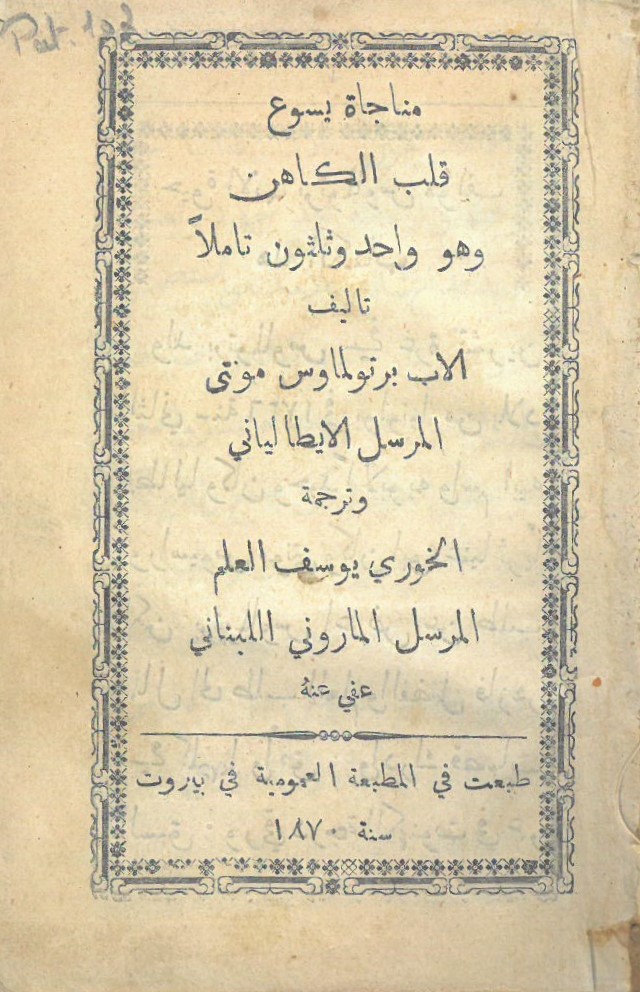 Pat. 123
مناجاة يسوع
قلب الكاهن
وهو واحد وثلثون تاملاً
تاليف
الاب برتولماوس مونتى
المرسل الايطالياني
وترجمة
الخوري يوسف العلم
المرسل الماروني اللبناني
عفي عنهُ
طبعت في المطبعة العمومية في بيروت
سنة ١٨٧٠